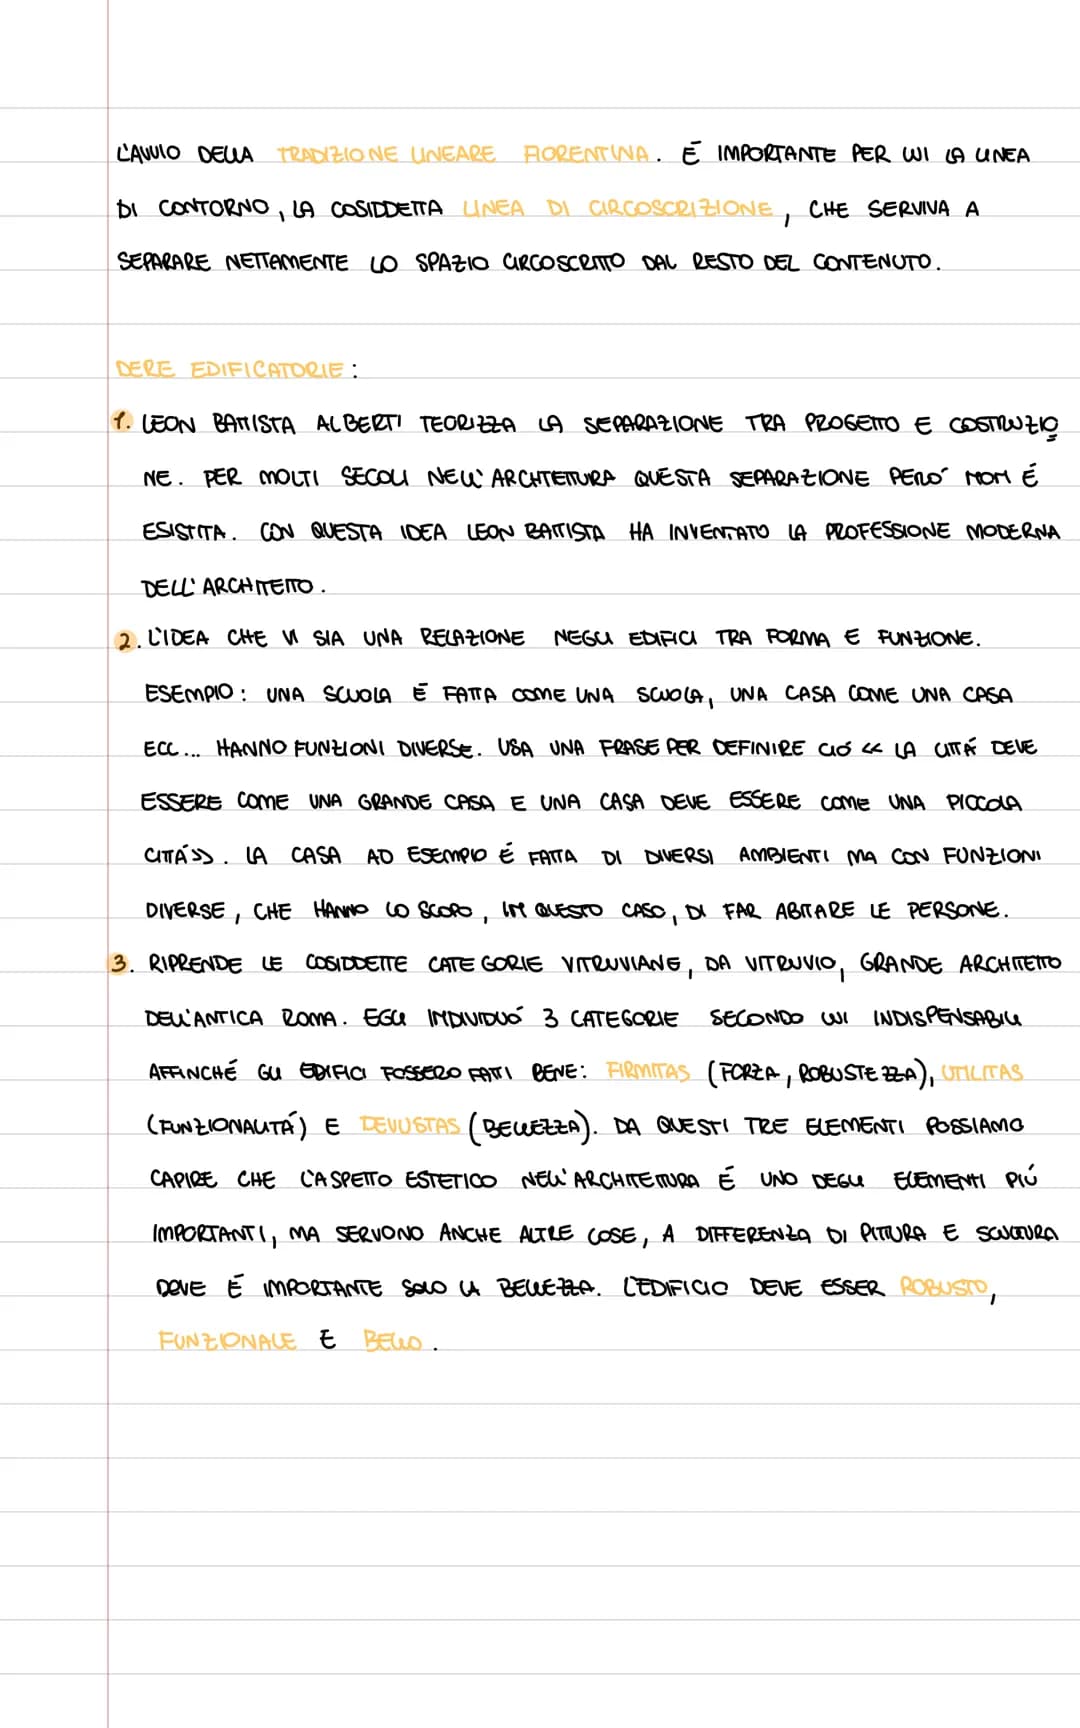 L'AVVIO DELLA TRADIZIONE LINEARE FIORENTINA. É IMPORTANTE PER LUI LA LINEA
DI CONTORNO, LA COSIDDETTA LINEA DI CIRCOSCRIZIONE, CHE SERVIVA A
SEPARARE NETTAMENTE LO SPAZIO CIRCOSCRITTO DAL RESTO DEL CONTENUTO.
DERE EDIFICATORIE:
1. LEON BATTISTA ALBERTI TEORIZZA LA SEPARAZIONE TRA PROGETTO E COSTRUZIO
NE. PER MOLTI SECOLI NELL'ARCHTETTURA QUESTA SEPARAZIONE PERÓ NON É
ESISTITA. CON QUESTA IDEA LEON BATTISTA HA INVENTATO LA PROFESSIONE MODERNA
DELL'ARCHITETTO.
2. L'IDEA CHE VI SIA UNA RELAZIONE NEGLI EDIFICI TRA FORMA E FUNZIONE.
ESEMPIO: UNA SCUOLA É FATTA COME UNA SCUOLA, UNA CASA COME UNA CASA
ECC... HANNO FUNZIONI DIVERSE. USA UNA FRASE PER DEFINIRE CIÓ << LA CITTÁ DEVE
ESSERE COME UNA GRANDE CASA E UNA CASA DEVE ESSERE COME UNA PICCOLA
CITTÁ>>. LA CASA AD ESEMPIO É FATTA DI DIVERSI AMBIENTI MA CON FUNZIONI
DIVERSE, CHE HANNO LO SCOPO, IN QUESTO CASO, DI FAR ABITARE LE PERSONE.
3. RIPRENDE LE COSIDDETTE CATEGORIE VITRUVIANE, DA VITRUVIO, GRANDE ARCHITETTO
DELL'ANTICA ROMA. EGLI INDIVIDUÓ 3 CATEGORIE SECONDO LUI INDISPENSABILI
AFFINCHÉ GLI EDIFICI FOSSERO FATTI BENE: FIRMITAS (FORZA, ROBUSTEZZA), UTILITAS
(FUNZIONALITÁ) E DEVUSTAS (BELLEZZA). DA QUESTI TRE ELEMENTI POSSIAMO
CAPIRE CHE L'ASPETTO ESTETICO NELL'ARCHITETTURA É UNO DEGLI ELEMENTI PIÚ
IMPORTANTI, MA SERVONO ANCHE ALTRE COSE, A DIFFERENZA DI PITTURA E SCULTURA
DOVE É IMPORTANTE SOLO LA BELLEZZA. L'EDIFICIO DEVE ESSER ROBUSTO,
FUNZIONALE E BELLO.